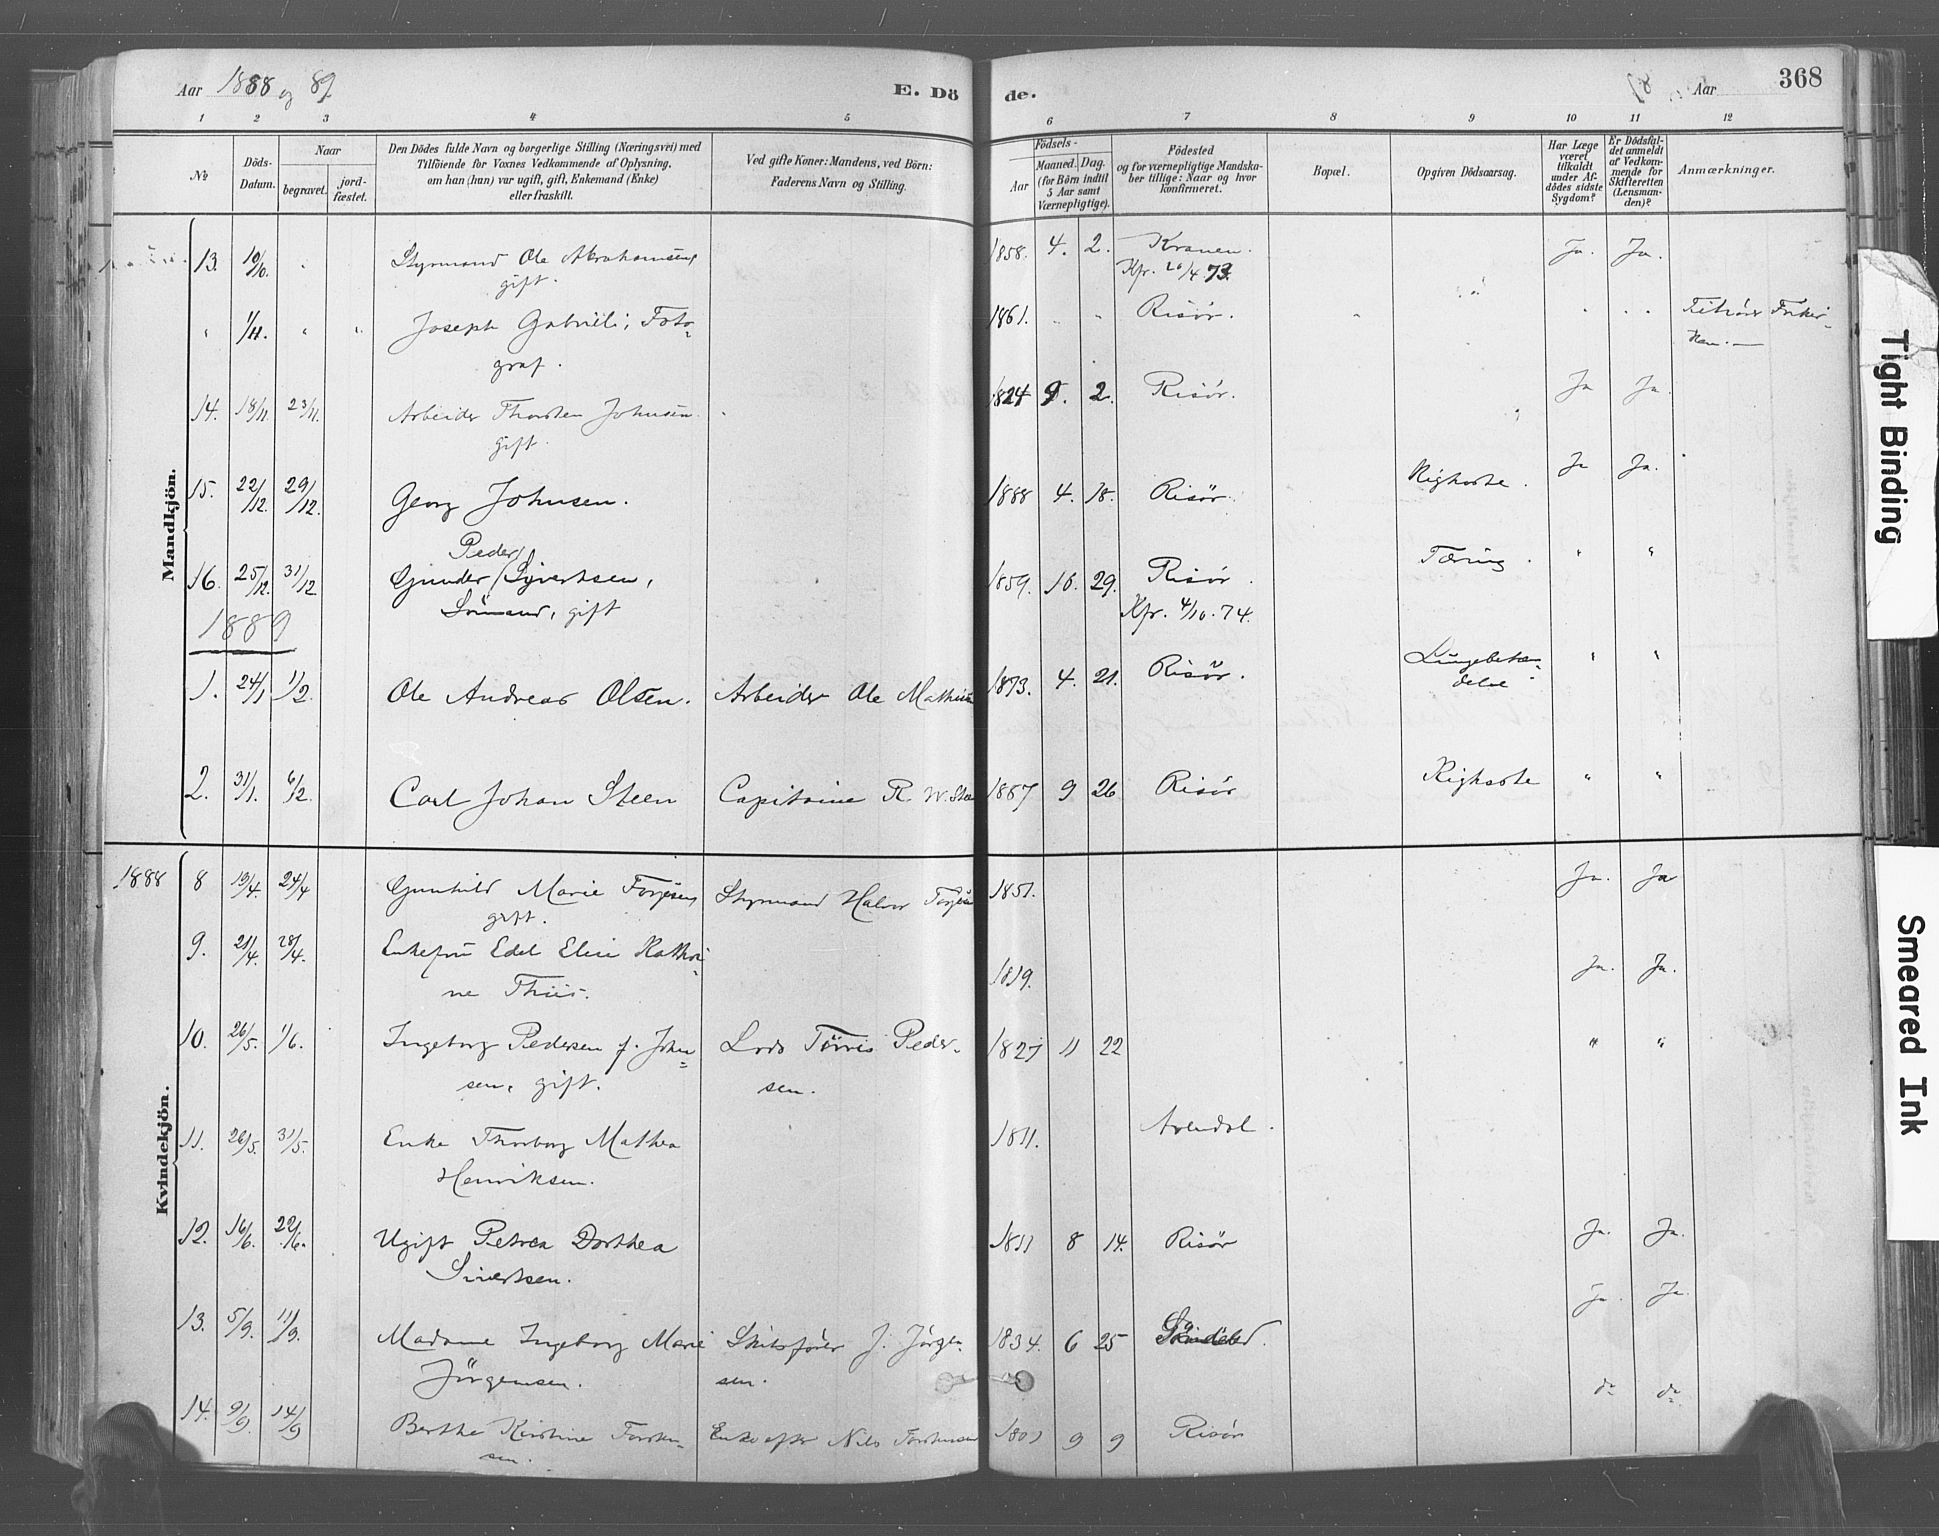 Aar 1888 og 89
E. Dö
de.
89 Aar
368
1 2 3 4 5 6 7 8 9 10 11 12
No
Döds-
Datum.
Naar
begravet.
jord-
fæstet.
Den Dödes fulde Navn og borgerlige Stilling (Næringsvei) med
Tilföiende for Voxnes Vedkommende af Oplysning,
om han (hun) var ugift, gift, Enkemand (Enke)
eller fraskilt.
Ved gifte Koner: Mandens, ved Börn:
Faderens Navn og Stilling.
Födsels-
Aar
Maaned. Dag.
(for Börn indtil
5 Aar samt
Værnepligtige).
Födested
og for værnepligtige Mandska-
ber tillige: Naar og hvor
konfirmeret.
Bopæl.
Opgiven Dödsaarsag.
Har Læge
været
tilkaldt
under Af-
dödes sidste
Sygdom?
Er Dödsfal-
det anmeldt
af Vedkom-
mende for
Skifteretten
(Lensman-
den)?
Anmærkninger.
Mandkjön.
13. 10/10. Styrmand Ole Abrahamsen 1858. 4. 2. Kranen. Ja. Ja.
gift. Kfr. 20/4 73.
" 1/11. " " Joseph Gabrieli, Foto- 1861. " " Risör. " " "
graf.
14. 18/11. 23/11. Arbeider Thorsten Johnsen 1824 9. 2. Risör. Ja Ja.
gift.
15. 22/12. 29/12. Georg Johnsen. 1888 4. 18. Risör. Righoste. Ja Ja.
Peder
16. 25/12. 31/12 Gunder Syvertsen, 1859. 10. 29. Risör. Tæring. " "
Sömand, gift Kfr. 4/10. 74.
1889
1. 24/1 1/2. Ole Andreas Olsen. Arbeider Ole Mathisen 1873. 4. 21. Risör. Lungebetæn- " "
delse
2. 31/1. 6/2. Carl Johan Steen Capitaine R. W. Steen 1887 9 26 Risör Kighoste " "
Kvindekjön.
1888 8 19/4. 24/4 Gunhild Marie Torjesen Styrmand Halvor Torjesen 1851. Ja. Ja
gift.
9. 21/4. 28/4. Enkefru Edel Elise Kathri- 1819. Ja. Ja.
ne Thiis.
10. 26/5. 1/6. Ingeborg Pedersen f. John- Lods Törris Peder- 1827 11 22 " "
sen, gift. sen.
11. 26/5. 31/5. Enke Thorborg Mathea 1811. Arendal.
Henriksen.
12. 16/6. 22/6. Ugift Petrea Dorthea 1811 8 14. Risör Ja. Ja.
Sivertsen.
13. 5/9. 11/9. Madame Ingeborg Marie Skibsförer J. Jörgen- 1834. 6 25 Ja. Ja.
Jörgensen. sen.
14. 9/9. 14/9 Berthe Kirstine Torsten- Enke efter Nils Torstensen 1801 9 9 Risör do do
sen.
Tight Binding
Smeared Ink